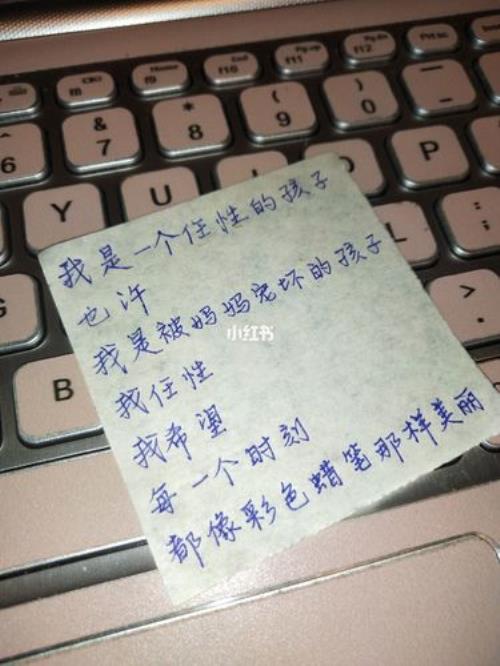 我是一个任性的孩子
也许
我是被妈妈宠坏的孩子
我任性
我希望
每一个时刻
都像彩色蜡笔那样美丽
小红书
F8
Home
F9
End
F10
PgUp
F11
PgDn
F12
PrtSc
Del
^
6
&
7
*
8
(
9
)
0
Y
U
O
P
G
L
B